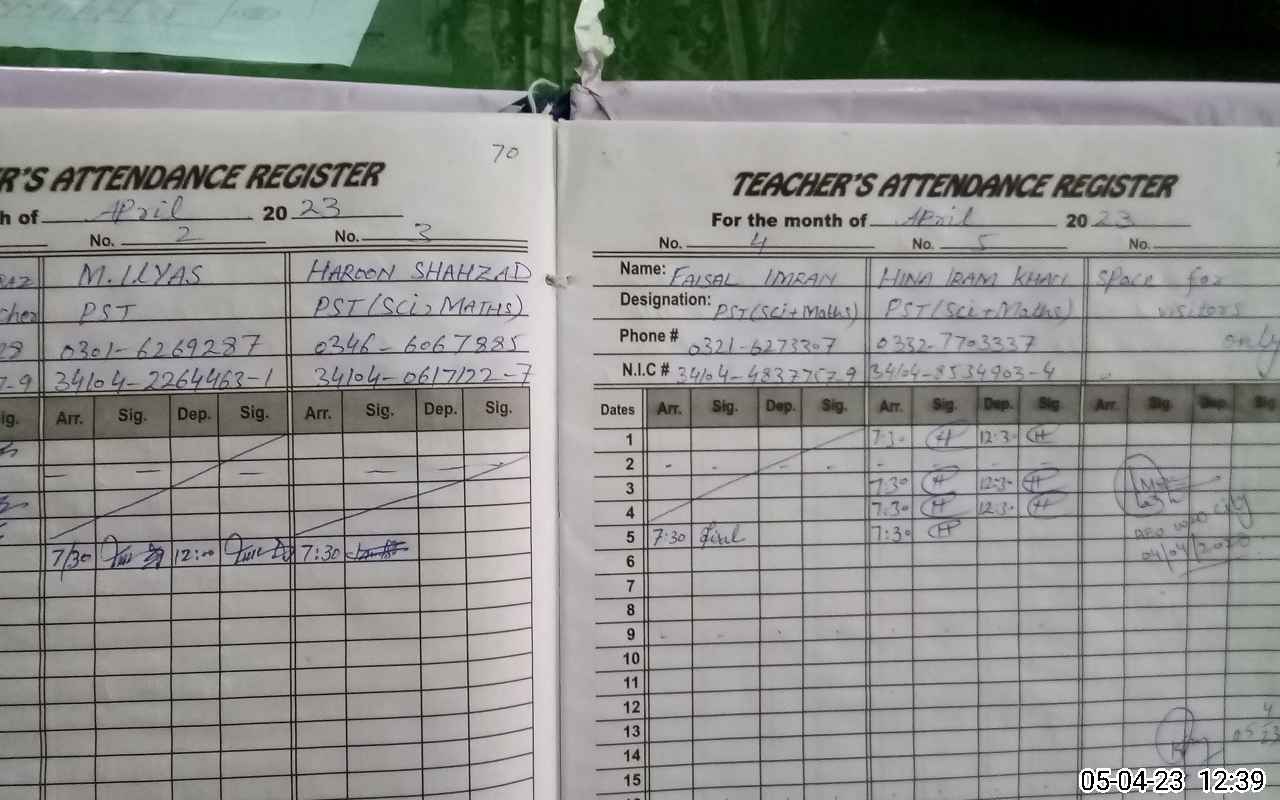 70
R'S ATTENDANCE REGISTER
h of April 20 23
No. 2 No. 3
M. ILYAS HAROON SHAHZAD
cher PST PST(Sci, MATHS)
28 0301-6269287 0346-6067885
7-9 34104-2264463-1 34104-0617122-7
ig. Arr. Sig. Dep. Sig. Arr. Sig. Dep. Sig.
7/30 12:00 7:30
TEACHER'S ATTENDANCE REGISTER
For the month of April 20 23
No. 4 No. 5 No.
Name: FAISAL IMRAN HINA IRAM KHAN Space for
Designation: PST(Sci+Maths) PST(Sci+Maths) visitors
Phone # 0321-6273307 0332-7703337 only
N.I.C # 34104-4837757-9 34104-8534903-4
Dates Arr. Sig. Dep. Sig. Arr. Sig. Dep. Sig. Arr. Sig. Dep. Sig.
1 7:30 H 12:30 H
2
3 7:30 H 12:30 H
4 7:30 H 12:30 H
5 7:30 7:30 H
6
7
8
9
10
11
12
13
14
15
05-04-23 12:39